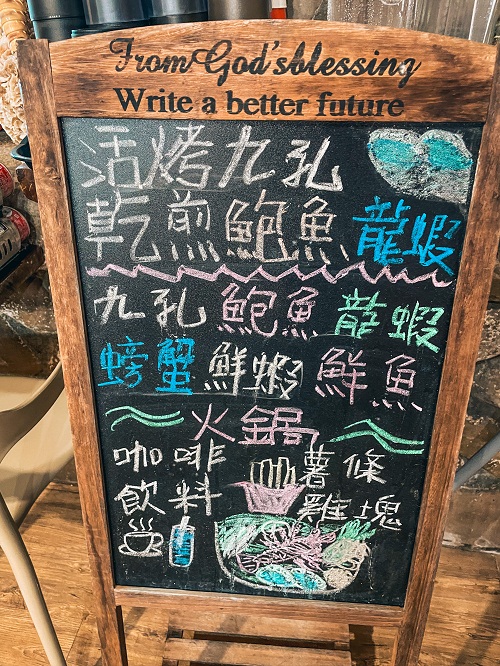 From God'sblessing
Write a better future
活烤九孔
乾煎鮑魚 龍蝦
九孔 鮑魚 龍蝦
螃蟹 鮮蝦 鮮魚
火鍋
咖啡 薯條
飲料 雞塊